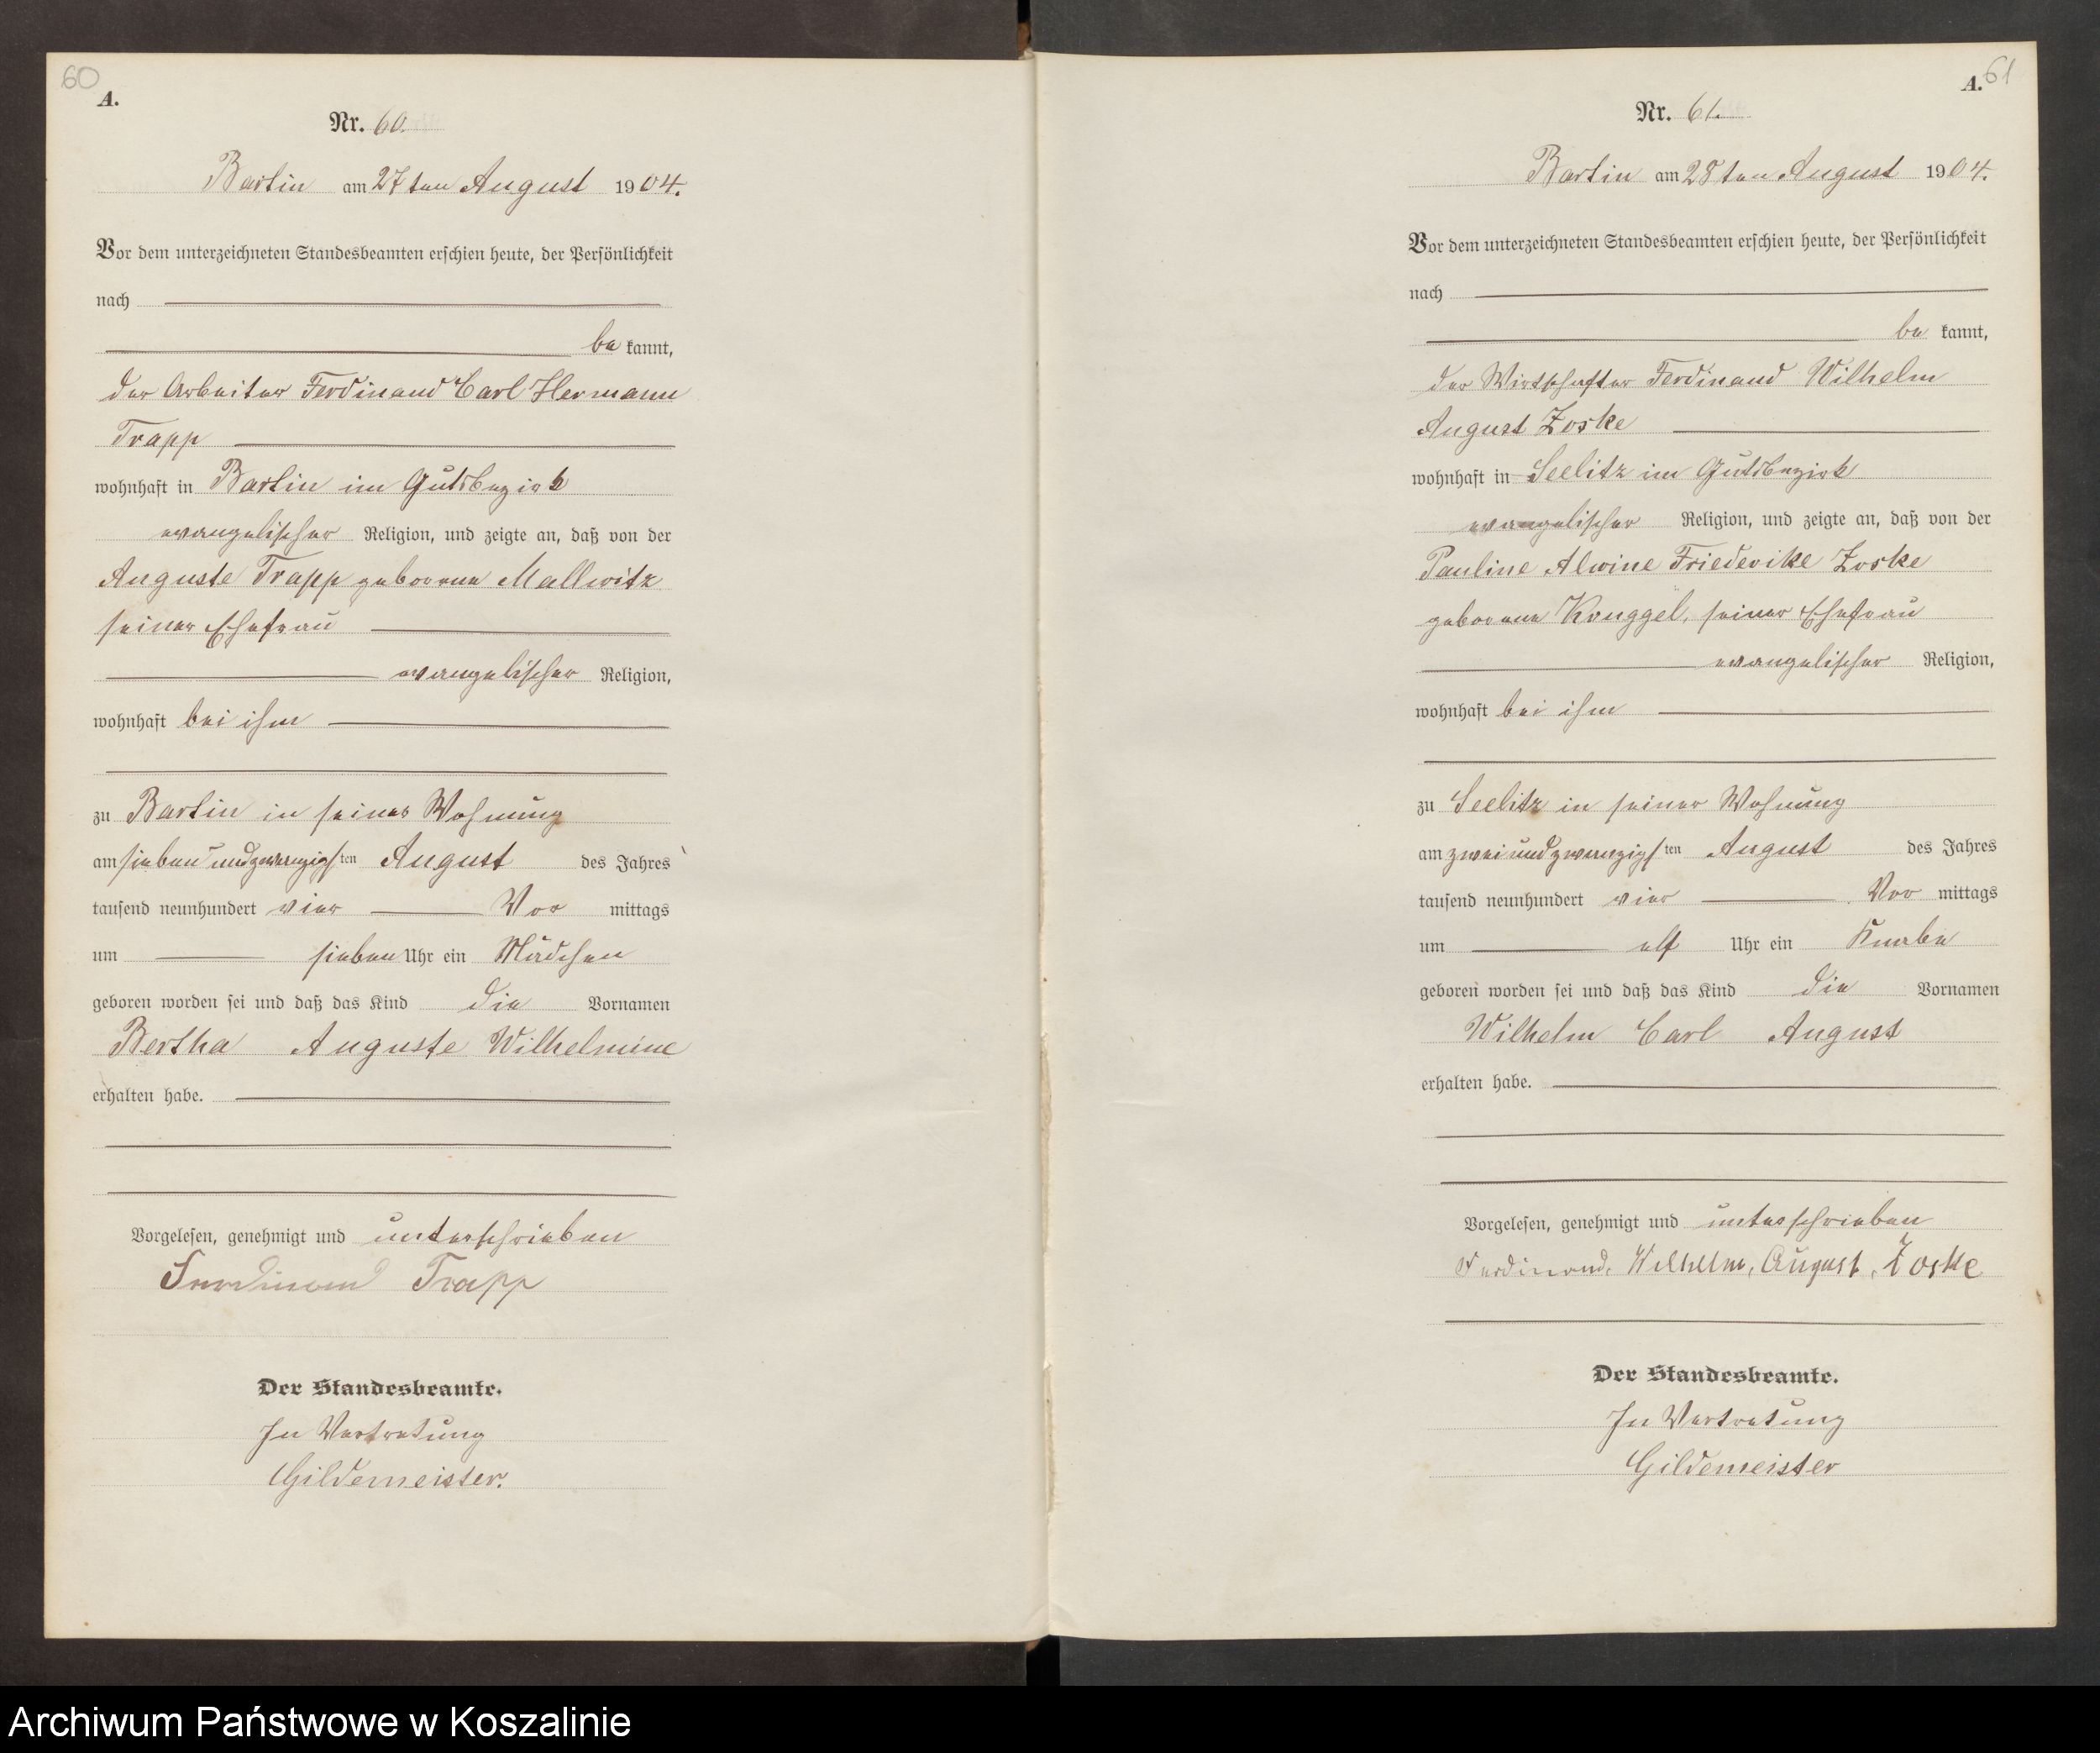 60
A.
Nr. 60.
Bartin am 27ten August 1904.
Vor dem unterzeichneten Standesbeamten erschien heute, der Persönlichkeit
nach
be kannt,
der Arbeiter Ferdinand Carl Hermann
Trapp
wohnhaft in Bartin im Gutsbezirk
evangelischer Religion, und zeigte an, daß von der
Auguste Trapp geborene Mallwitz
seiner Ehefrau
evangelischer Religion,
wohnhaft bei ihm
zu Bartin in seiner Wohnung
am siebenundzwanzigsten August des Jahres
tausend neunhundert vier Vor mittags
um sieben Uhr ein Mädchen
geboren worden sei und daß das Kind die Vornamen
Bertha Auguste Wilhelmine
erhalten habe.
Vorgelesen, genehmigt und unterschrieben
Ferdinand Trapp
Der Standesbeamte.
In Vertretung
Gildemeister.
61
A.
Nr. 61.
Bartin am 28ten August 1904.
Vor dem unterzeichneten Standesbeamten erschien heute, der Persönlichkeit
nach
be kannt,
der Wirtschafter Ferdinand Wilhelm
August Zoske
wohnhaft in Seelitz im Gutsbezirk
evangelischer Religion, und zeigte an, daß von der
Pauline Alwine Friederike Zoske
geborene Kruggel, seiner Ehefrau
evangelischer Religion,
wohnhaft bei ihm
zu Seelitz in seiner Wohnung
am zweiundzwanzigsten August des Jahres
tausend neunhundert vier Vor mittags
um elf Uhr ein Knabe
geboren worden sei und daß das Kind die Vornamen
Wilhelm Carl August
erhalten habe.
Vorgelesen, genehmigt und unterschrieben
Ferdinand, Wilhelm, August, Zoske
Der Standesbeamte.
In Vertretung
Gildemeister
Archiwum Państwowe w Koszalinie